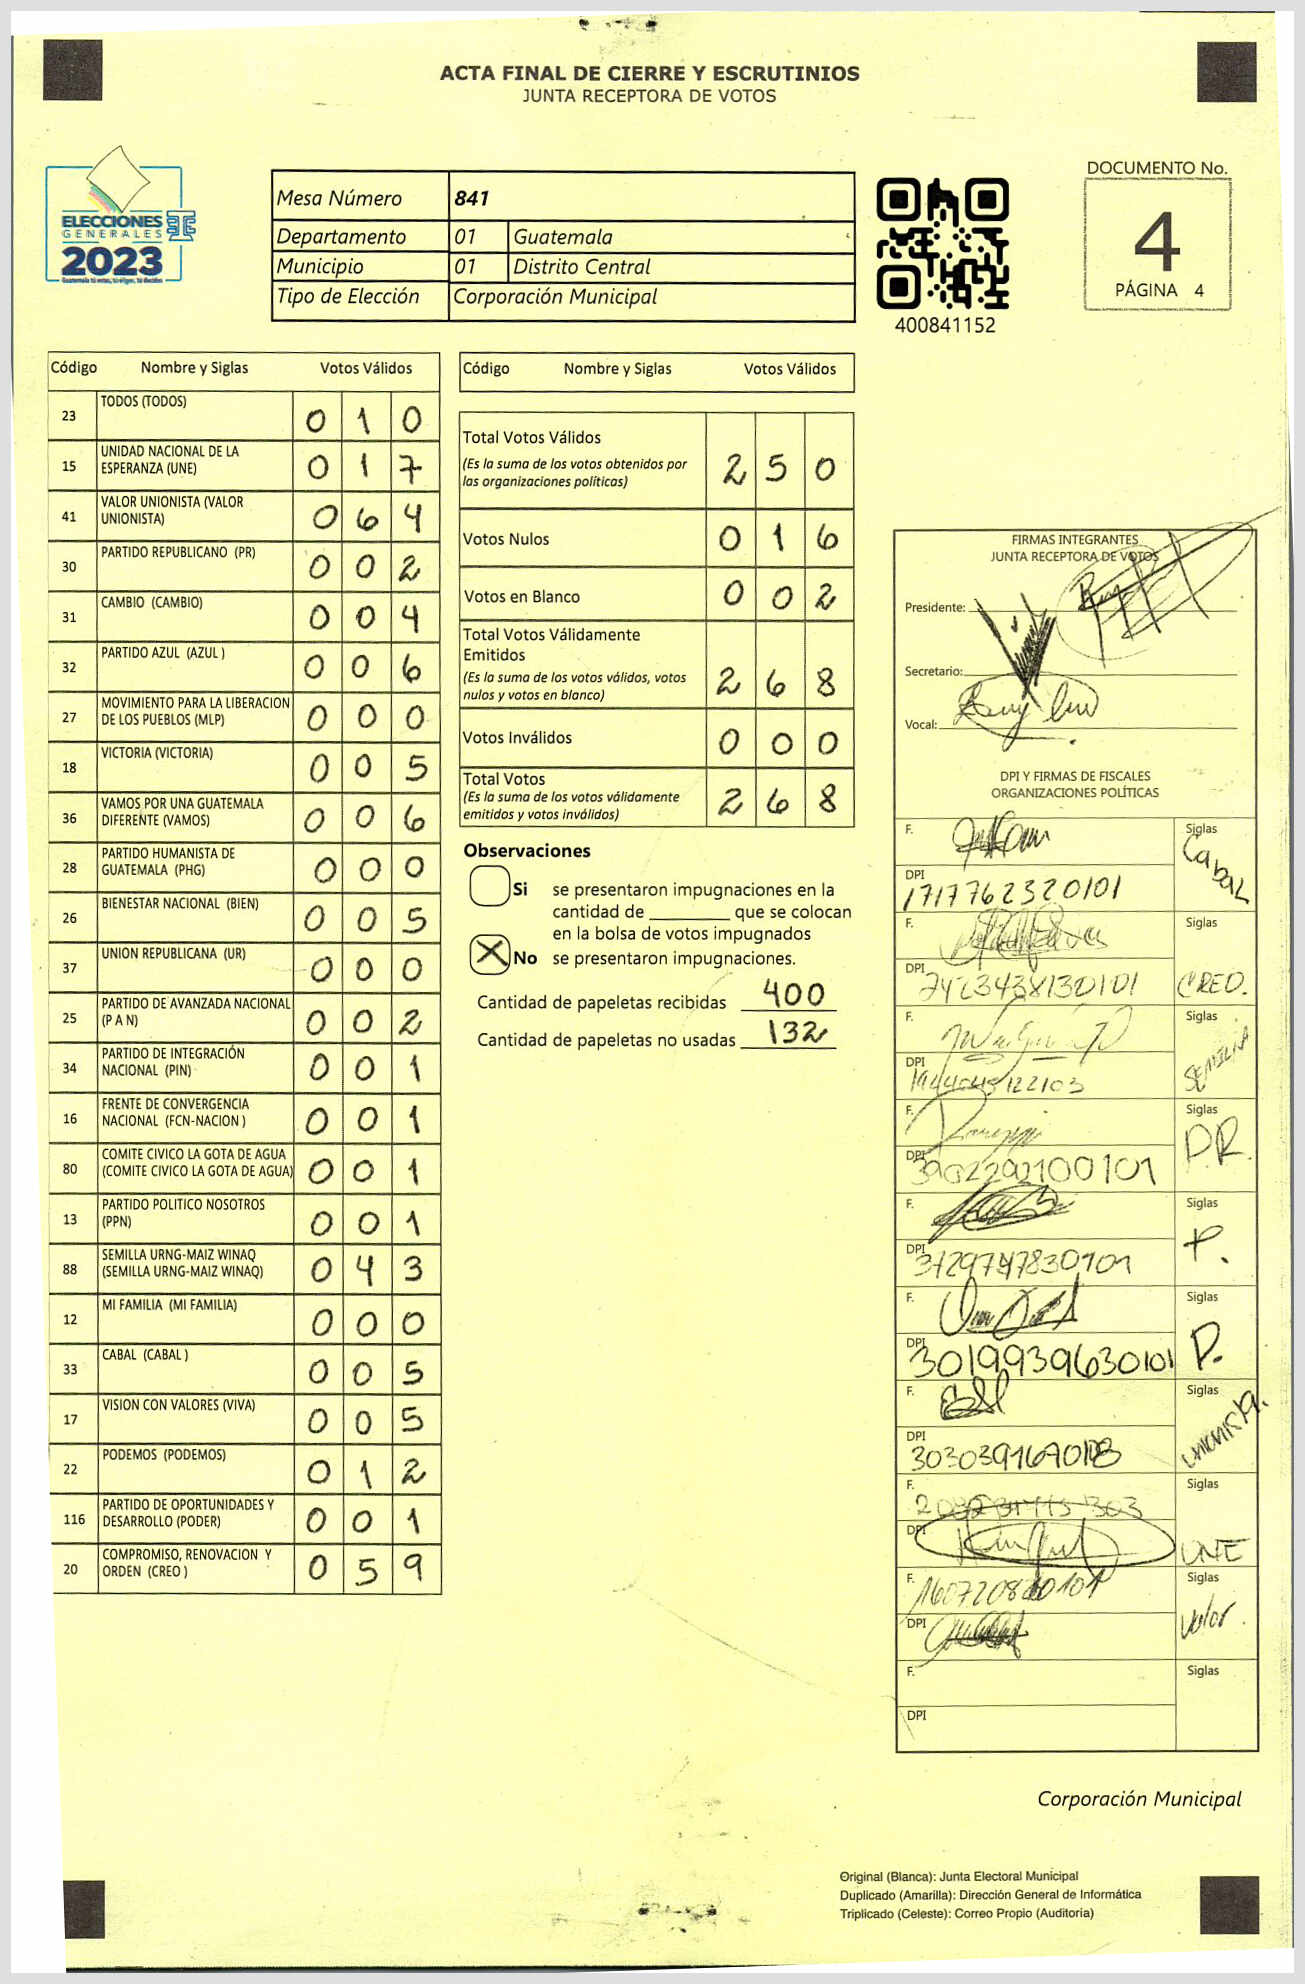 ACTA FINAL DE CIERRE Y ESCRUTINIOS
JUNTA RECEPTORA DE VOTOS
ELECCIONES
GENERALES
2023
Mesa Número 841
Departamento 01 Guatemala
Municipio 01 Distrito Central
Tipo de Elección Corporación Municipal
400841152
DOCUMENTO No.
4
PÁGINA 4
Código Nombre y Siglas Votos Válidos
23 TODOS (TODOS) 0 1 0
15 UNIDAD NACIONAL DE LA ESPERANZA (UNE) 0 1 7
41 VALOR UNIONISTA (VALOR UNIONISTA) 0 6 4
30 PARTIDO REPUBLICANO (PR) 0 0 2
31 CAMBIO (CAMBIO) 0 0 4
32 PARTIDO AZUL (AZUL ) 0 0 6
27 MOVIMIENTO PARA LA LIBERACION DE LOS PUEBLOS (MLP) 0 0 0
18 VICTORIA (VICTORIA) 0 0 5
36 VAMOS POR UNA GUATEMALA DIFERENTE (VAMOS) 0 0 6
28 PARTIDO HUMANISTA DE GUATEMALA (PHG) 0 0 0
26 BIENESTAR NACIONAL (BIEN) 0 0 5
37 UNION REPUBLICANA (UR) 0 0 0
25 PARTIDO DE AVANZADA NACIONAL (P A N) 0 0 2
34 PARTIDO DE INTEGRACIÓN NACIONAL (PIN) 0 0 1
16 FRENTE DE CONVERGENCIA NACIONAL (FCN-NACION ) 0 0 1
80 COMITE CIVICO LA GOTA DE AGUA (COMITE CIVICO LA GOTA DE AGUA) 0 0 1
13 PARTIDO POLITICO NOSOTROS (PPN) 0 0 1
88 SEMILLA URNG-MAIZ WINAQ (SEMILLA URNG-MAIZ WINAQ) 0 4 3
12 MI FAMILIA (MI FAMILIA) 0 0 0
33 CABAL (CABAL ) 0 0 5
17 VISION CON VALORES (VIVA) 0 0 5
22 PODEMOS (PODEMOS) 0 1 2
116 PARTIDO DE OPORTUNIDADES Y DESARROLLO (PODER) 0 0 1
20 COMPROMISO, RENOVACION Y ORDEN (CREO ) 0 5 9
Código Nombre y Siglas Votos Válidos
Total Votos Válidos 2 5 0
(Es la suma de los votos obtenidos por
las organizaciones políticas)
Votos Nulos 0 1 6
Votos en Blanco 0 0 2
Total Votos Válidamente
Emitidos
(Es la suma de los votos válidos, votos 2 6 8
nulos y votos en blanco)
Votos Inválidos 0 0 0
Total Votos
(Es la suma de los votos válidamente 2 6 8
emitidos y votos inválidos)
Observaciones
Si se presentaron impugnaciones en la
cantidad de ________ que se colocan
en la bolsa de votos impugnados
X No se presentaron impugnaciones.
Cantidad de papeletas recibidas 400
Cantidad de papeletas no usadas 132
FIRMAS INTEGRANTES
JUNTA RECEPTORA DE VOTOS
Presidente:
Secretario:
Vocal:
DPI Y FIRMAS DE FISCALES
ORGANIZACIONES POLÍTICAS
F. Siglas
Cabal
DPI
1717762320101
F. Siglas
DPI
CREO.
F. Siglas
SEMILLA
DPI
F. Siglas
P.R.
DPI
F. Siglas
P.
DPI
F. Siglas
P.
DPI
3019939630101
F. Siglas
UNIONISTA.
DPI
F. Siglas
DPI
UNE
F. Siglas
Valor.
DPI
F. Siglas
DPI
Corporación Municipal
Original (Blanca): Junta Electoral Municipal
Duplicado (Amarilla): Dirección General de Informática
Triplicado (Celeste): Correo Propio (Auditoria)